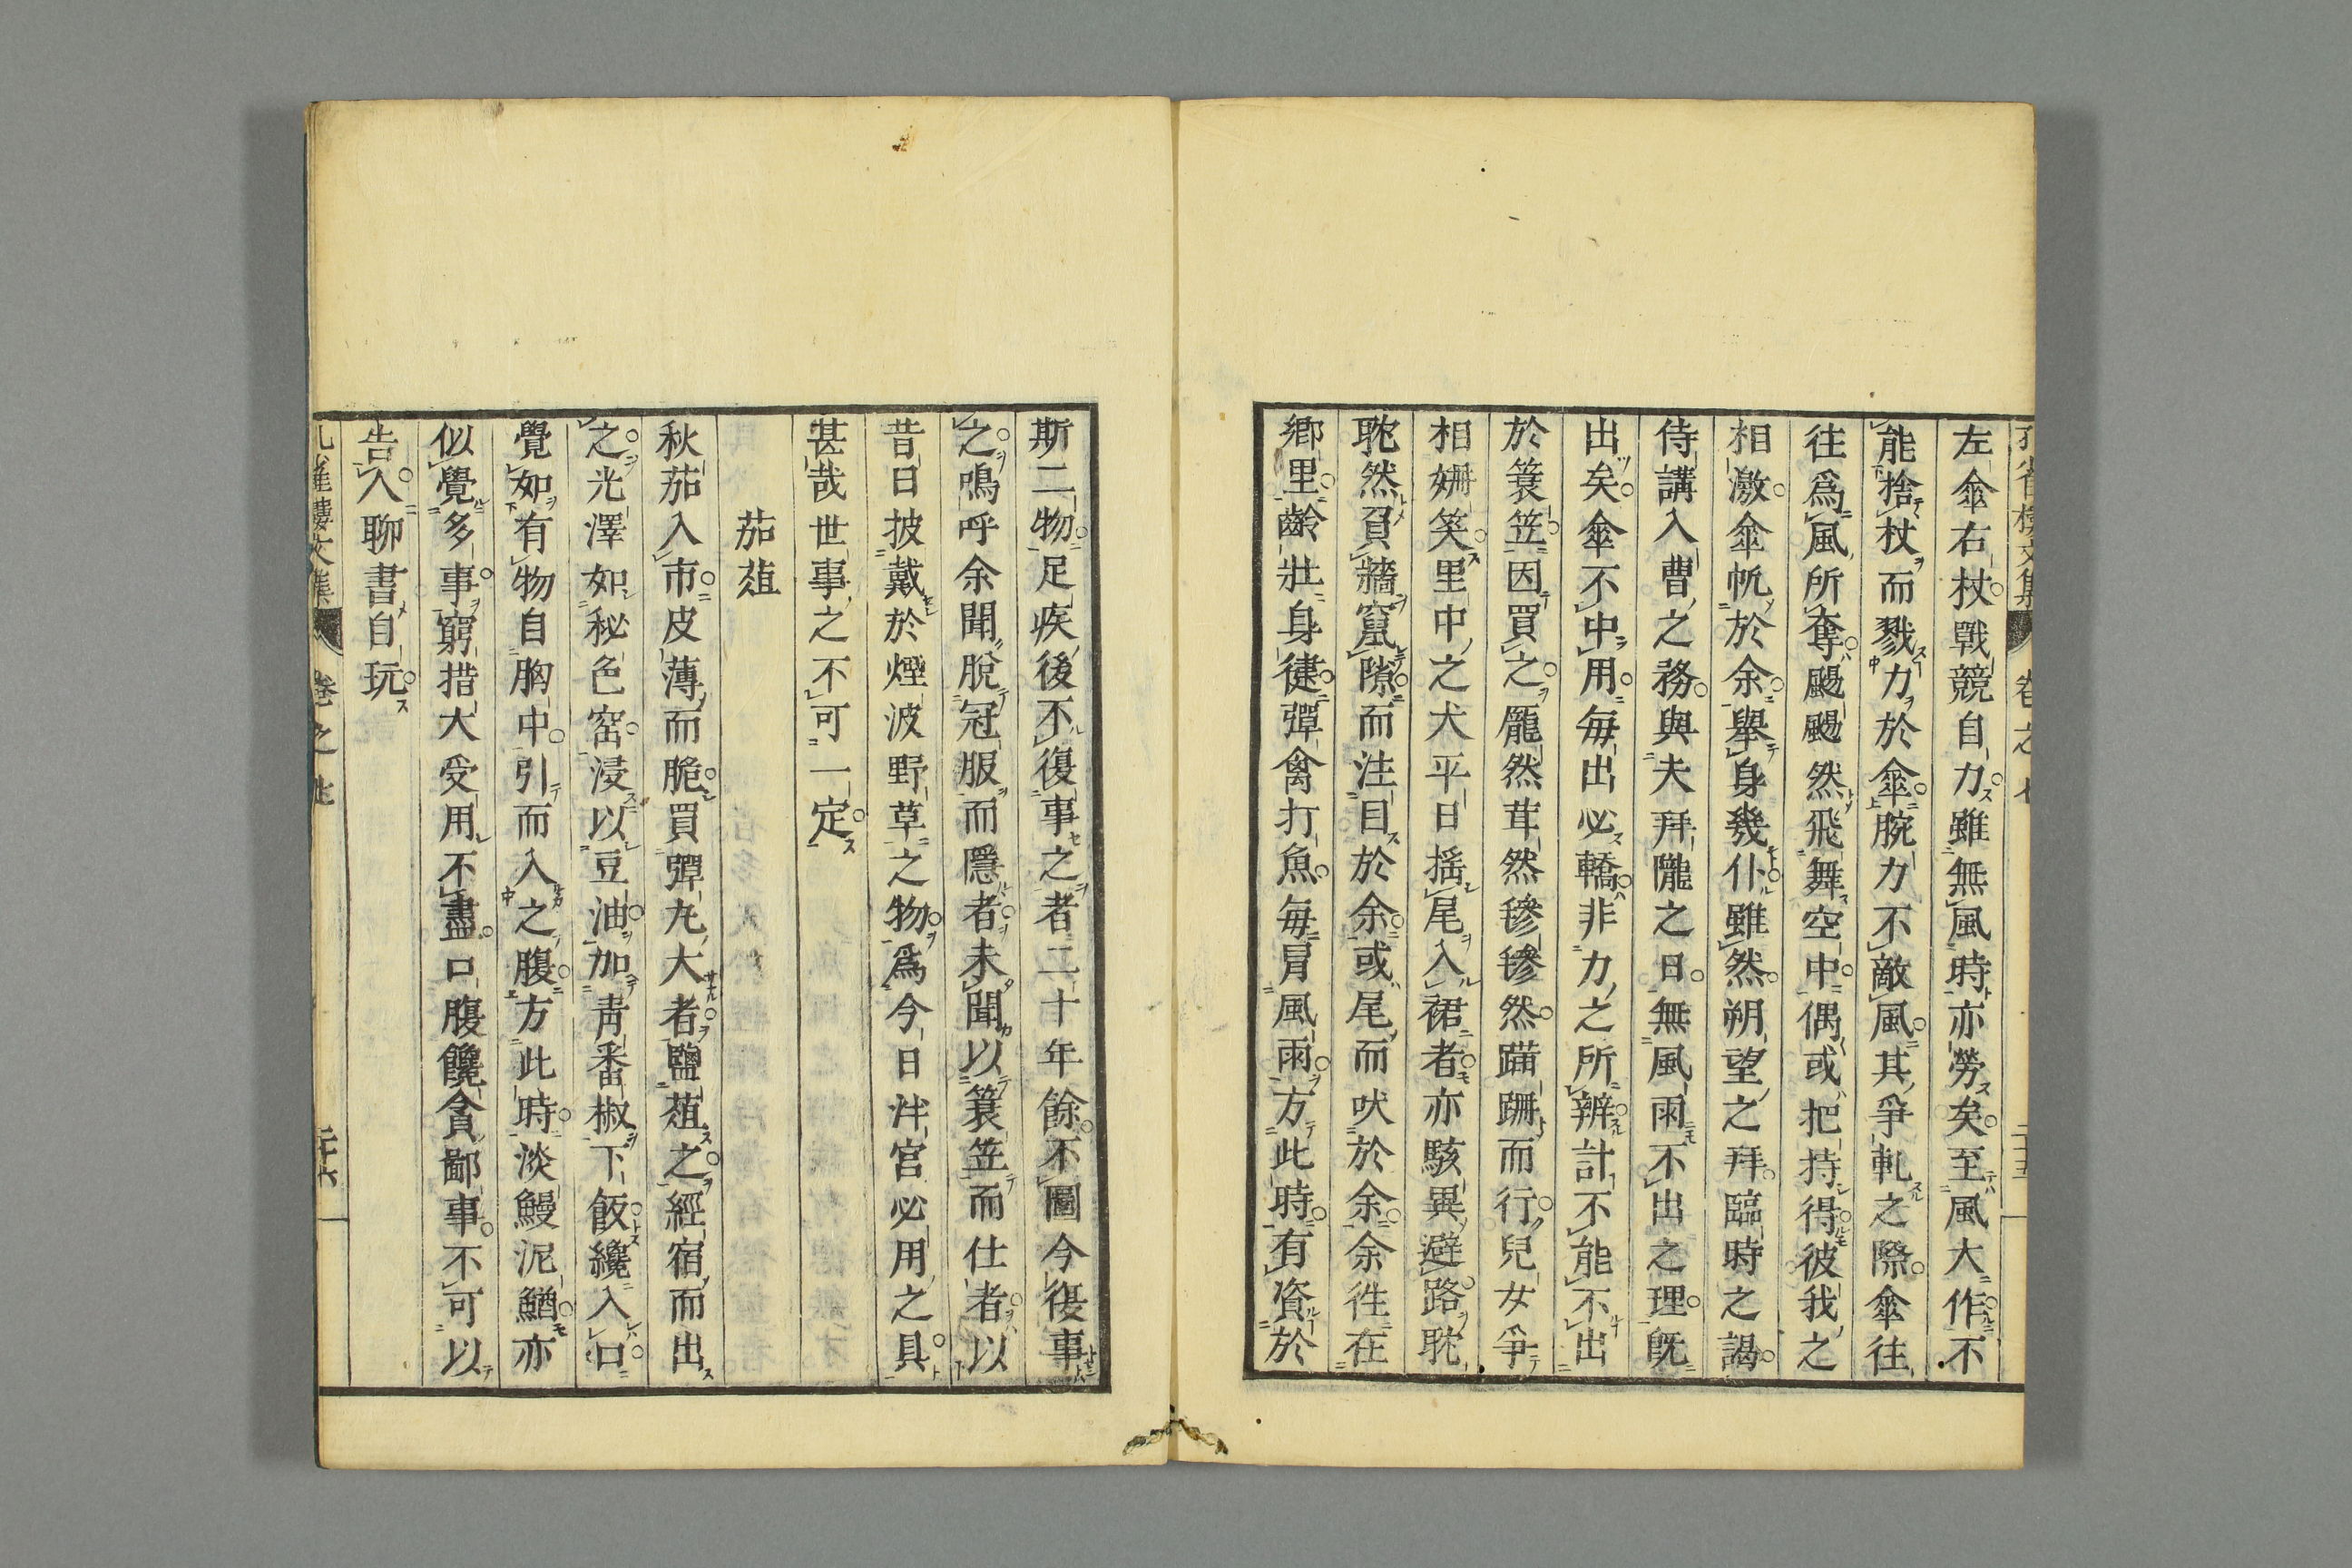 左傘右杖戰競自力雖無風時亦勞矣至風大作不
能捨杖而戮力於傘腕力不敵風其爭軋之際傘往
往爲風所奪颺颺然飛舞空中偶或把持得彼我之
相激傘帆於余舉身幾仆雖然朔望之拜臨時之謁
侍講入曹之務與夫拜隴之日無風雨不出之理既
出矣傘不中用毎出必轎非力之所辨計不能不出
於簑笠因買之龎然茸然毿毿然蹣跚而行兒女爭
相姍笑里中之犬平日搖尾入裙者亦駭異避路眈
眈然負牆窺隙而注目於余或尾而吠於余余徃在
鄉里齡壯身健彈禽打魚毎冐風雨方此時有資於
斯二物足疾後不復事之者二十年餘不圖今復事
之嗚呼余聞脫冠服而隱者未聞以簑笠而仕者以
昔日披戴於煙波野草之物爲今日泮宮必用之具
甚哉世事之不可一定
茄葅
秋茄入市皮薄而脆買彈丸大者鹽葅之經宿而出
之光澤如秘色窑浸以豆油加靑番椒下飯纔入口
覺如有物自胸中引而入之腹方此時淡鰻泥鰌亦
似覺多事窮措大受用不盡口腹饞貪鄙事不可以
告人聊書自玩
卷之七